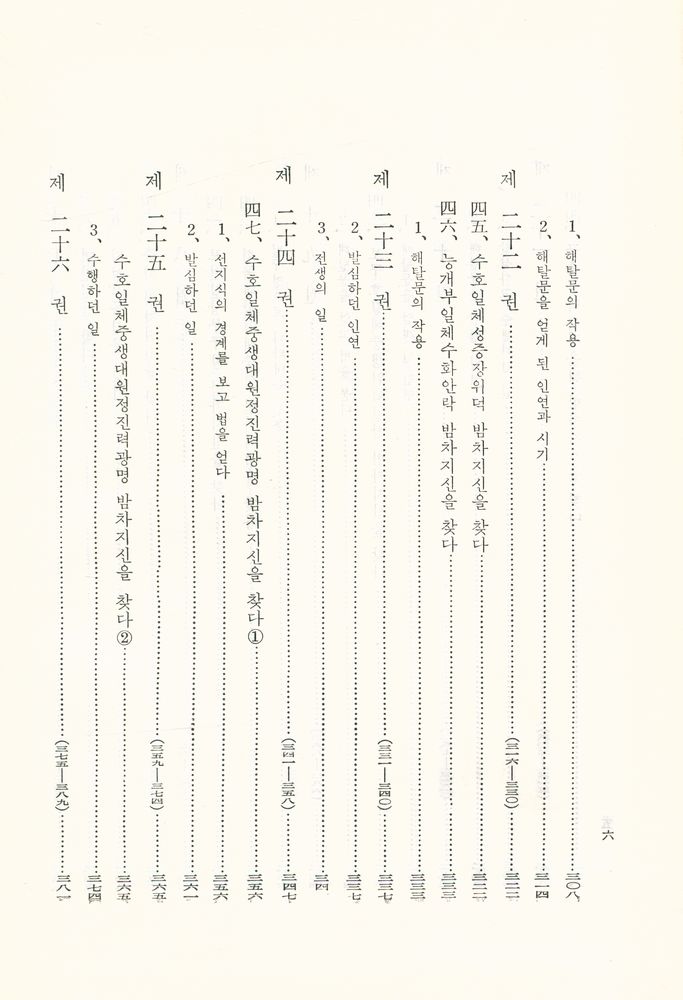 六
1、해탈문의 작용……三〇八
2、해탈문을 얻게 된 인연과 시기……三一四
제 二十二 권……(三一六—三三〇)……三二二
四五、수호일체성증장위덕 밤차지신을 찾다……三二二
四六、능개부일체수화안락 밤차지신을 찾다……三三三
1、해탈문의 작용……三三三
제 二十三 권……(三三一—三四〇)……三三七
2、발심하던 인연……三三七
3、전생의 일……三四
제 二十四 권……(三四一—三五八)……三四七
四七、수호일체중생대원정진력광명 밤차지신을 찾다①……三五六
1、선지식의 경계를 보고 법을 얻다……三五六
2、발심하던 일……三六一
제 二十五 권……(三五九—三七四)……三六五
수호일체중생대원정진력광명 밤차지신을 찾다②……三六五
3、수행하던 일……三七四
제 二十六 권……(三七五—三八九)……三八一